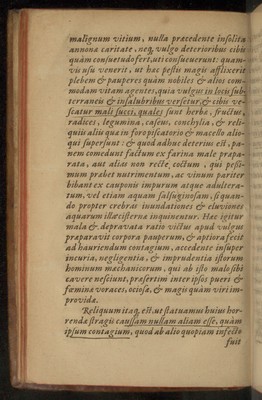 malignum vitium, nulla præcedente insolita
annonæ caritate, neq, vulgo deterioribus cibis
quàm consuetudo fert, uti consueuerunt: quam-
vis usu venerit, ut hæc pestis magis afflixerit
plebem & pauperes quàm nobiles & alios com-
modam vitam agentes, quia vulgus in locis sub-
terraneis & insalubribus versetur, & cibis ve-
scatur mali succi, quales sunt herbæ, fructus,
radices, legumina, casem, conchylia, & reli-
quiis aliis qua in foro piscatorio & macello alio-
qui supersunt: & quod adhuc deterius est, pa-
nem comedunt factum ex farina male præpa-
rata, aut alias non rectè coctum, qui pessi-
mum præbet nutrimentum, ac vinum pariter
bibant ex cauponis impurum atque adultera-
tum, vel etiam aquam salsuginosam, siquan-
do propter crebras inundationes & eluviones
aquarum illæ cisternæ inquinentur. Hæc igitur
mala & depravata ratio victus apud vulgus
præparavit corpora pauperum, & aptiora fecit
ad hauriendum contagium, accedente insuper
incuria, negligentia, & imprudentia istorum
hominum mechanicorum, qui ab isto malo sibi
cavere nesciunt, præsertim inter ipsos pueri &
fœminæ voraces, otiosæ, & magis quàm viri im-
providæ.
Reliquum itaq, est, ut statuamus huius hor-
rendæ stragis caussam nullam aliam esse, quàm
ipsum contagium, quod ab alio quopiam infecto
fuit